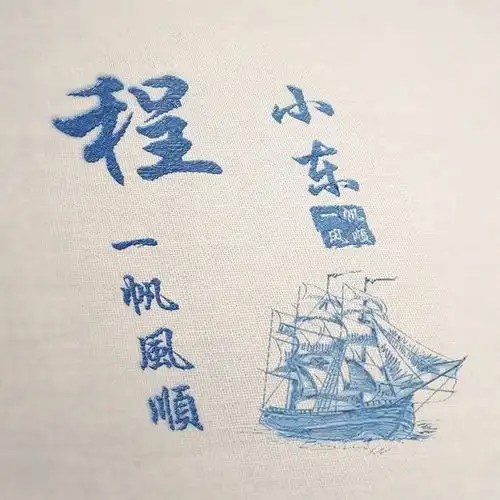 程
小东
一帆风顺
一帆風順